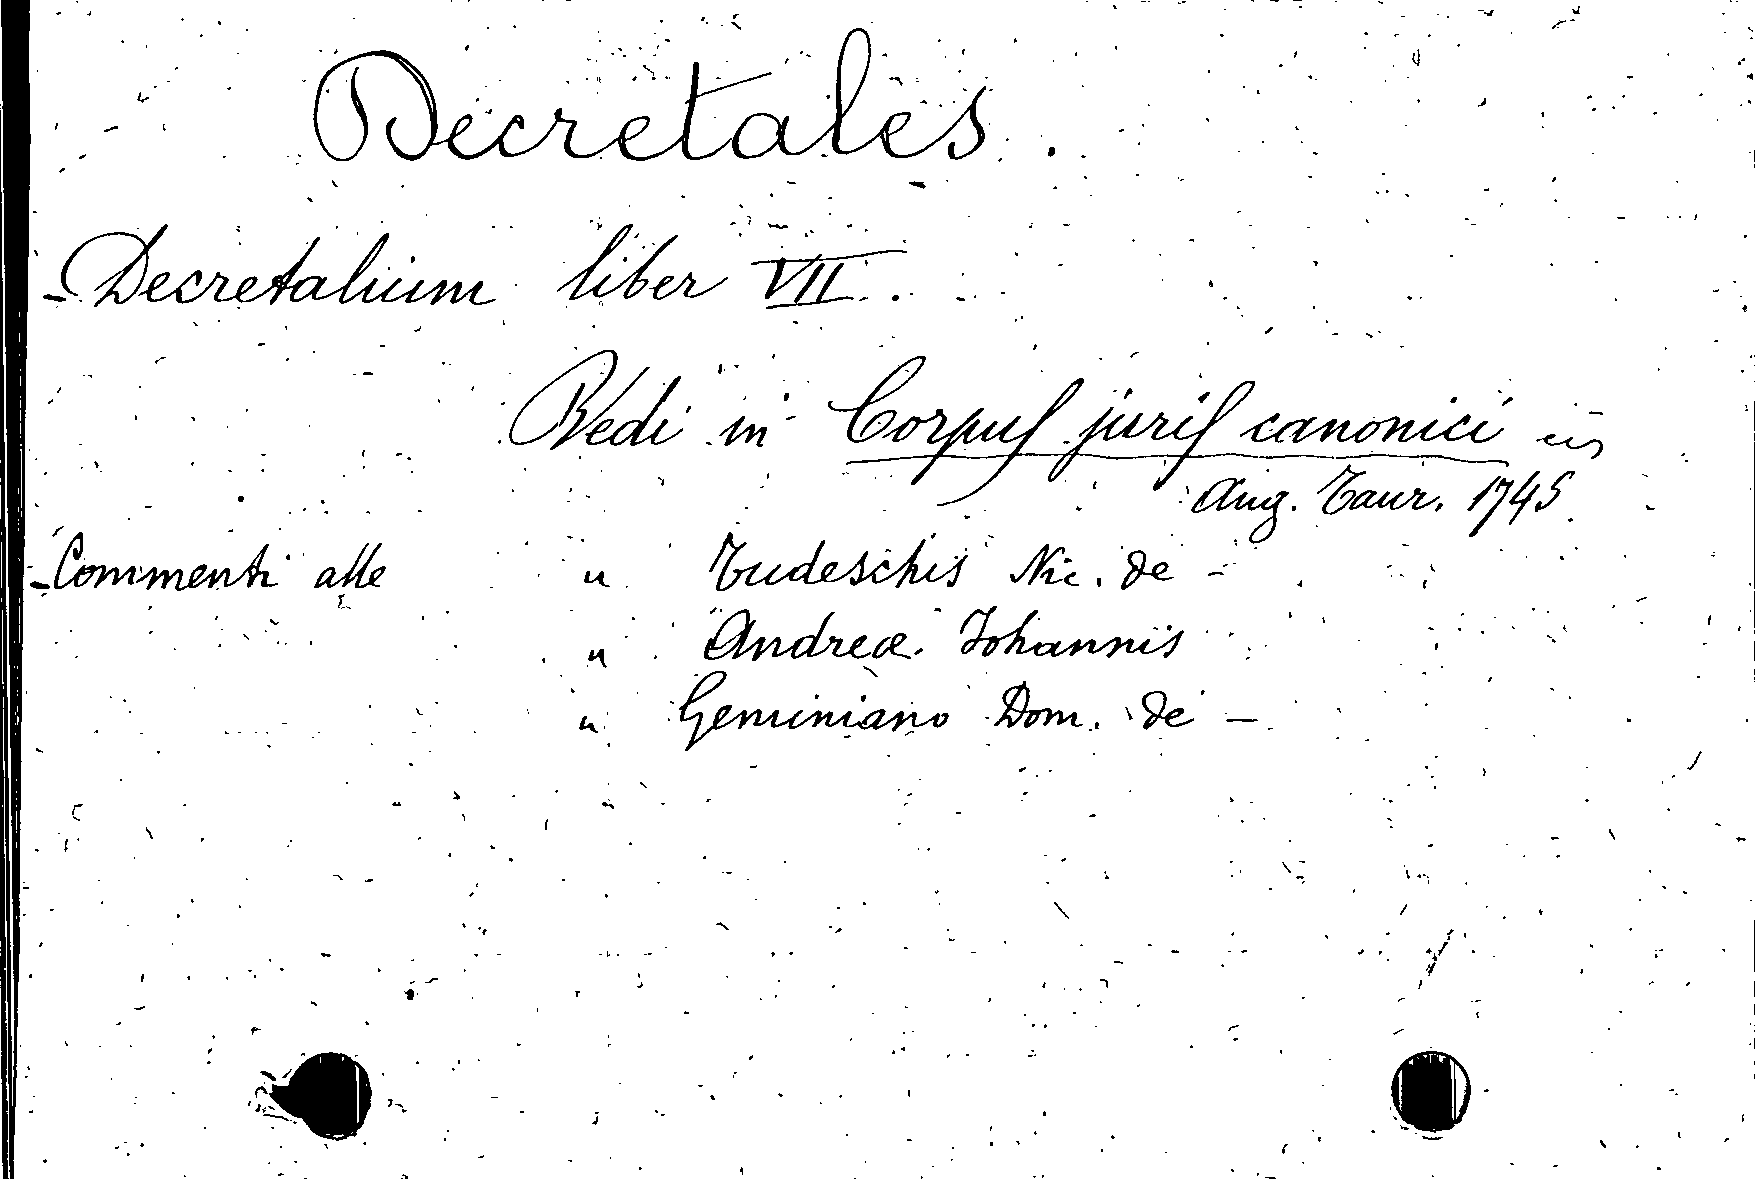 Decretales.
- Decretalium liber VII.
Vedi in Corpus juris canonici
Aug. Taur. 1745
- Commenti alle " Tudeschis Nic. de -
" Andreæ Johannis
" Geminiano Dom. de -